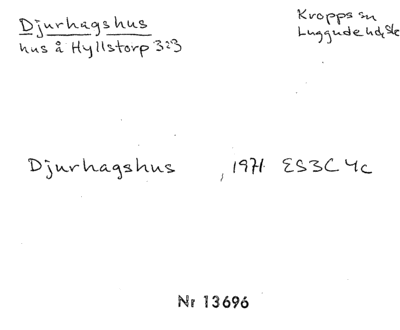 Djurhagshus
hus å Hyllstorp 3:3
Kropps sn
Luggude hd, Sk
Djurhagshus , 1971 ES3C4c
Nr 13696